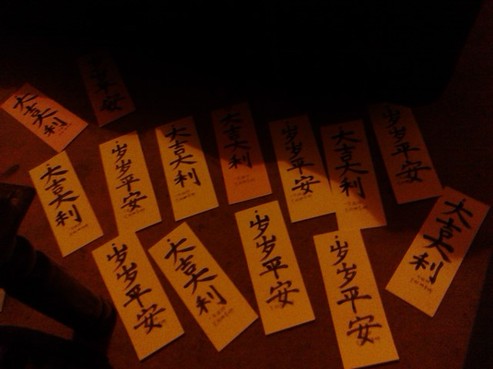 大吉大利
岁岁平安
大吉大利
岁岁平安
大吉大利
大吉大利
岁岁平安
大吉大利
岁岁平安
岁岁平安
大吉大利
岁岁平安
岁岁平安
大吉大利